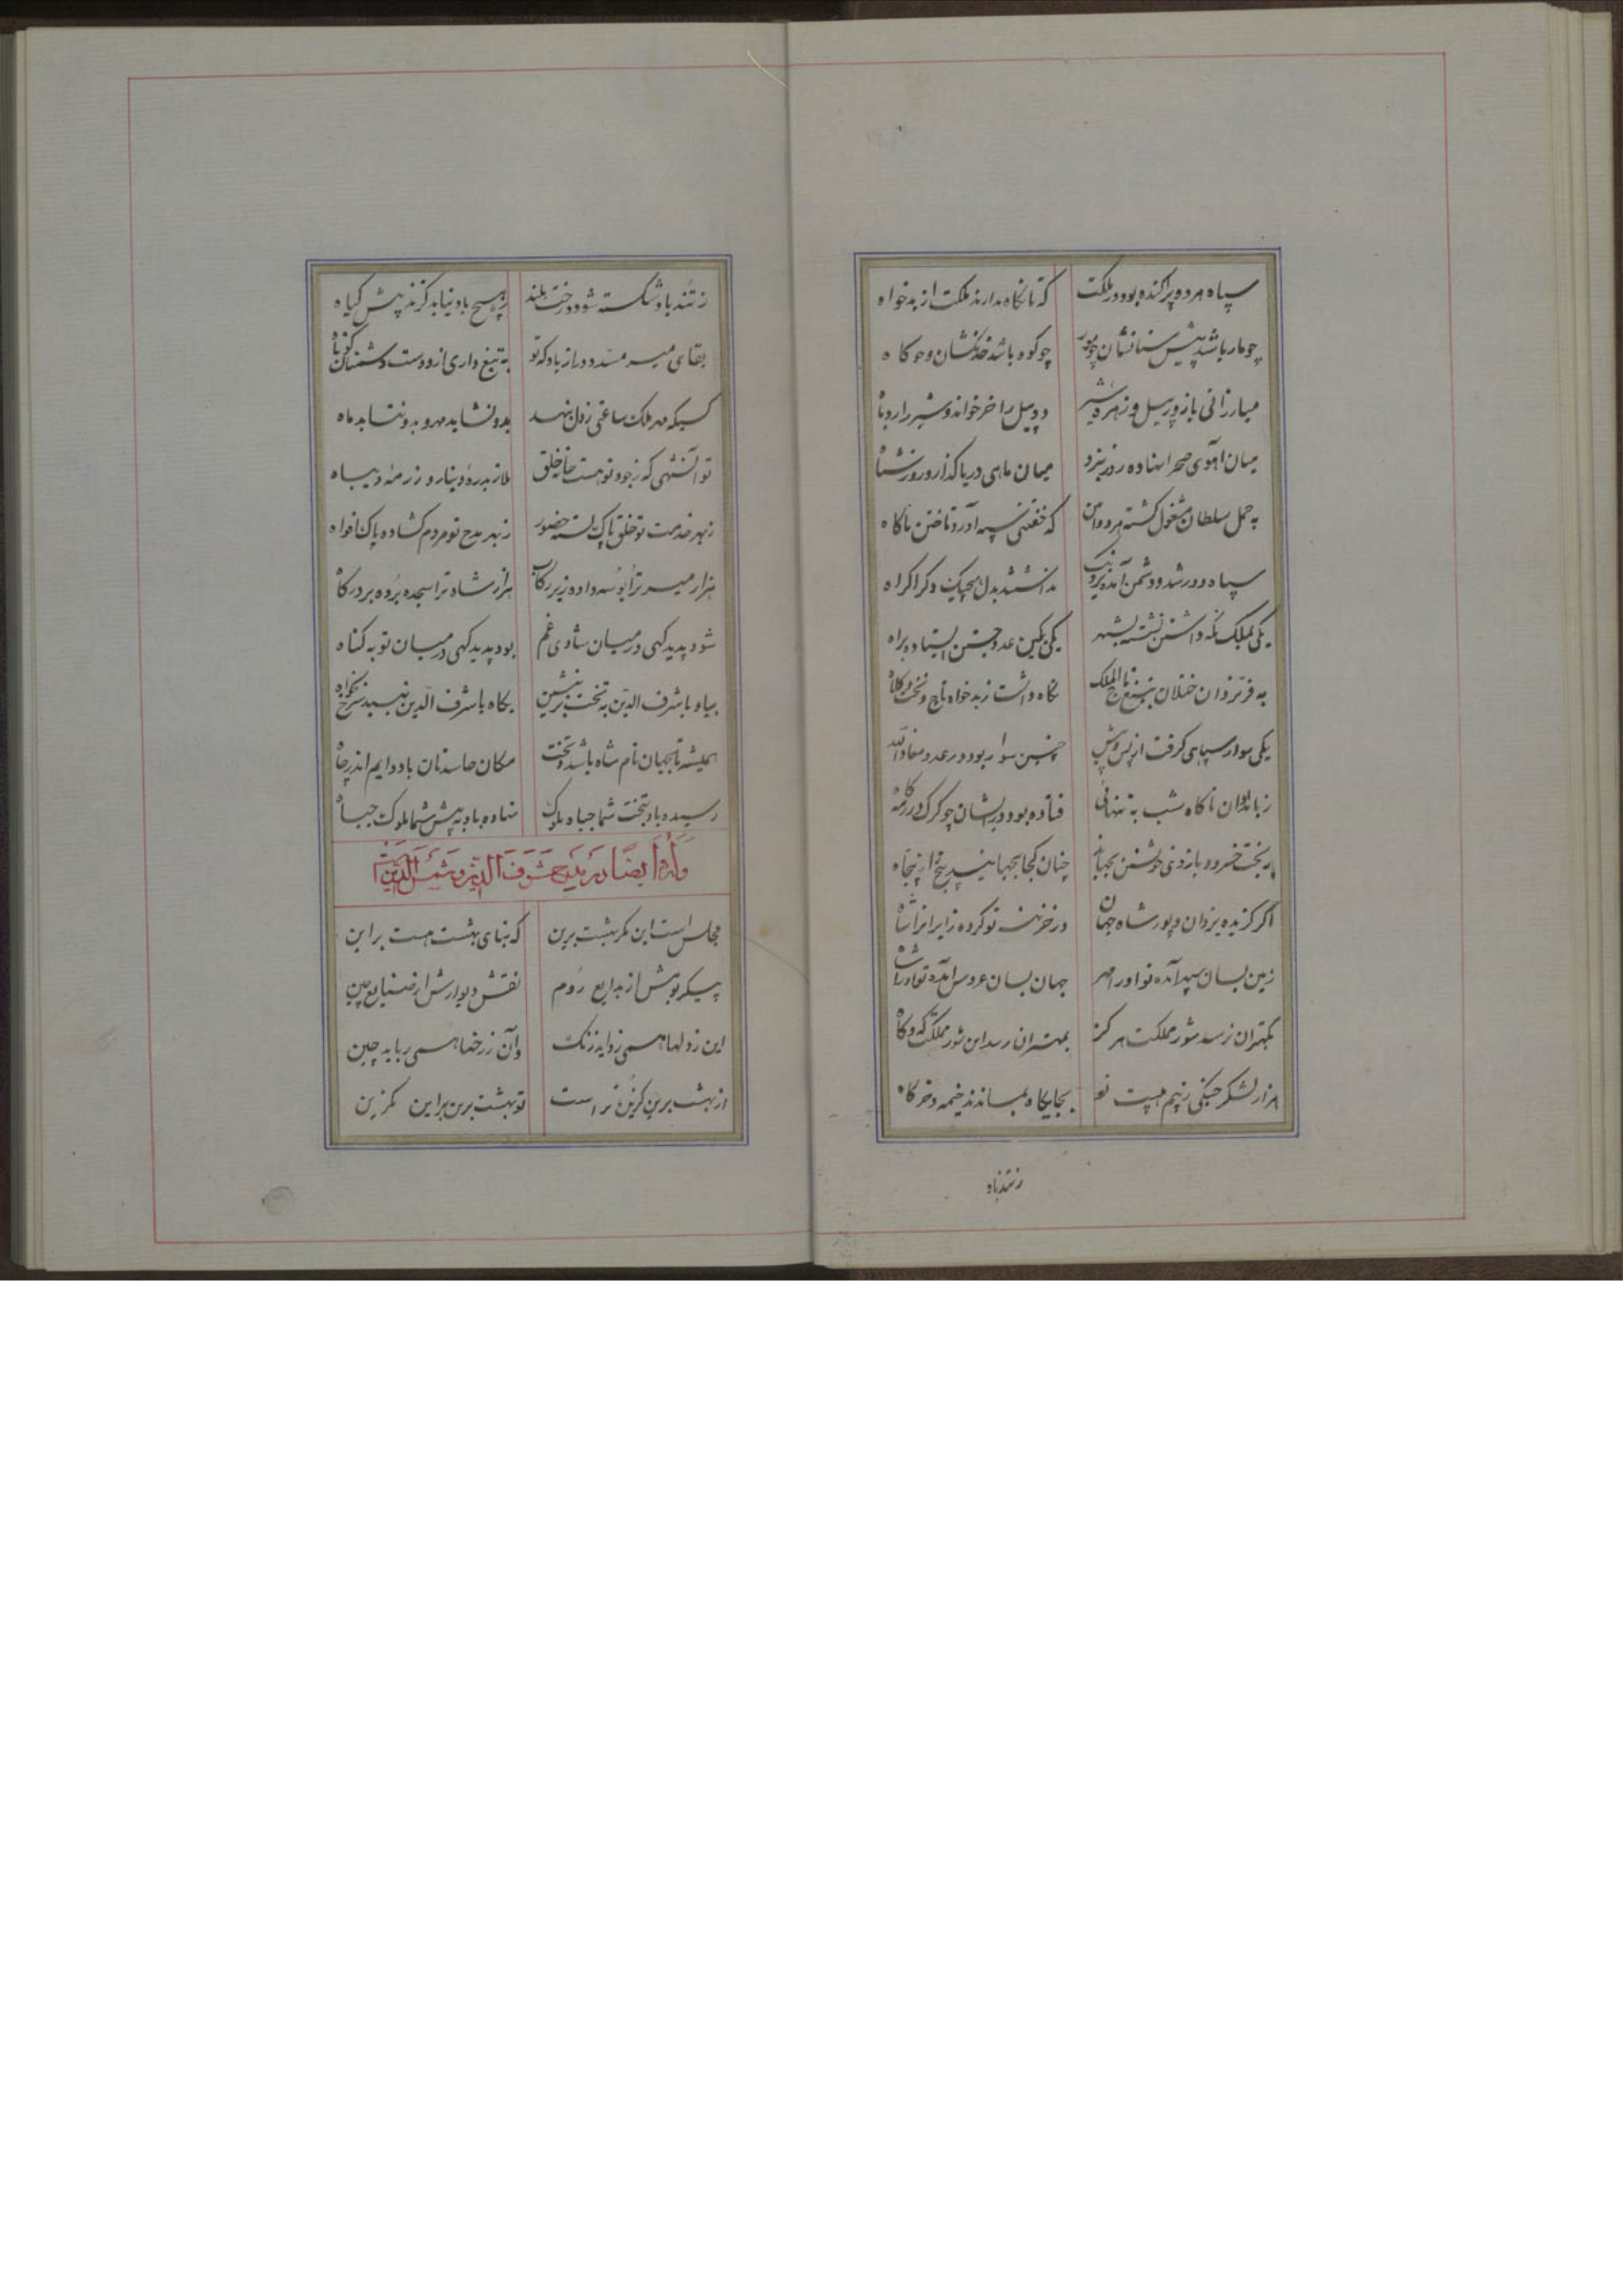 سپاه هر دو پراکنده بود در ملکت که تا نگاه بدارند ملکت از بدخواه
چو مار باشد پیش سنانشان چو مور چو کوه باشد خدنگشان و چو کاه
مبارزانی بازوی پیل و زهره شیر دو پیل را خر خواند و شیر را روباه
میان آهوی صحرا نهاده روز نبرد میان ماهی دریا گذار روز شناه
به حمل سلطان مشغول گشته هر دو امن که خفتنی سپه آورد تاختن ناگاه
سپاه دور شد و دشمن آمده نزدیک بدانستند بدل هیچیک دگر اکراه
یکی بملک نگه داشتن نشسته بشهر یکی بکین عدو جستن ایستاده براه
به فر یزدان ختلان بتیغ تاج الملک نگاه داشت ز بدخواه تاج و تخت و کلاه
یکی سوار سپاهی گرفت از پس و پیش چنین سوار بود در عدو معاذالله
فتاده بود در ایشان چو گرگ در رمه گاه
ببخت خسرو و بازوی خویشتن بجهاند چنان کجا بجهانید بیخ از پنجاه
اگر گزیده یزدان و پور شاه جهان در خزینه تو کرده زایرانرا شاه
زمین بسان سپهر آمده تو او را مهر جهان بسان عروس آمده تو او را شاه
بکهتران نرسد شور مملکت هرگز بمهتران رسد این شور مملکت گه و گاه
هزار لشکر جنگی ز بیم هیبت تو بجایگاه بماندند خیمه و خرگاه
ز تند باد
ز تند باد شکسته شود درخت بلند ز هیچ باد نیابد گزند پیش گیاه
بقای میر مسدد دراز باد که تو به تیغ داری از دوست دشمنان کوتاه
کسیکه مهر ملک ساعتی ز دل بنهد بدو نشاید مهر و بدو نتابد ماه
تو آنشهی که ز جود تو هست خانه خلق ملا ز بدره دینار و رزمه دیباه
ز بهر خدمت تو خلق پاک بسته حضور ز بهر مدح تو مردم گشاده پاک افواه
هزار میر ترا بوسه داده زیر رکاب هزار شاه ترا سجده برده بر درگاه
شود پدید گهی در میان شادی غم بود پدید گهی در میان توبه گناه
بیا و با شرف الدین به تخت بر بنشین بگاه با شرف الدین نبید سرخ بخواه
همیشه تا بجهان نام شاه باشد و تخت مکان حاسدتان باد دایم اندر چاه
رسیده باد بتخت شما جباه ملوک نهاده باد به پیش شما ملوک جباه
وله ایضا در مدح شرف الدین و شمس الدین
مجلس است این مگر بهشت برین که بنای بهشت هست بر این
پیکر بومش از بدایع روم نقش دیوارش از صنایع چین
این ز دلها همی زداید زنگ وآن ز رخها همی رباید چین
از بهشت برین گزین تر است تو بهشت برین بر این مگزین